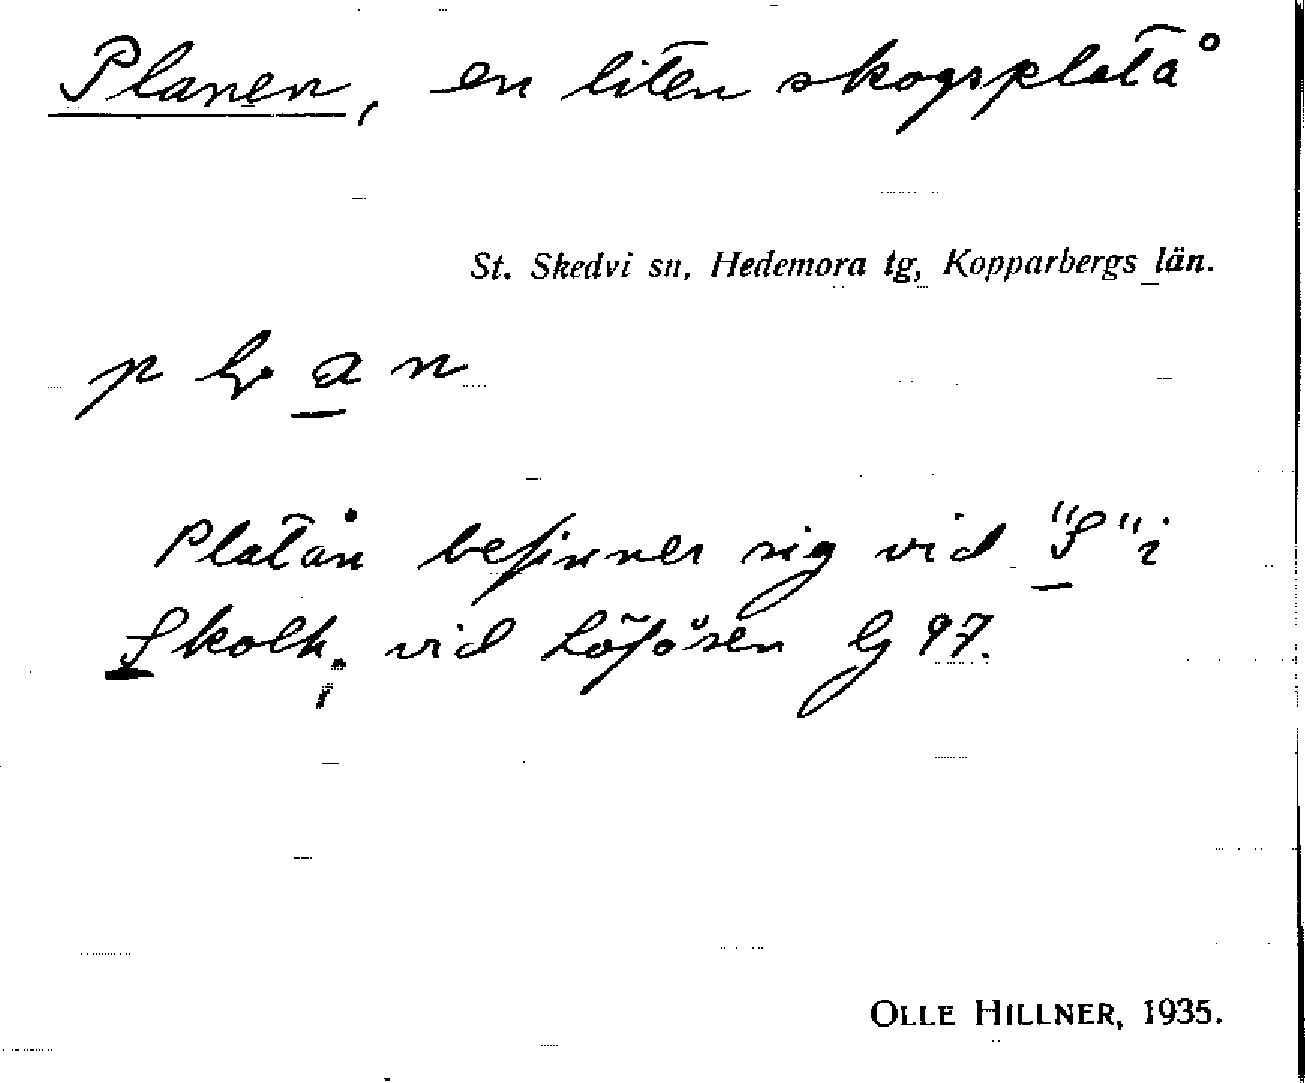 Planen, en liten skogsplatå
St. Skedvi sn, Hedemora tg, Kopparbergs län.
p l a n
Platån befinner sig vid "S" i
Skolh. vid Löfåsen lg 97.
OLLE HILLNER, 1935.